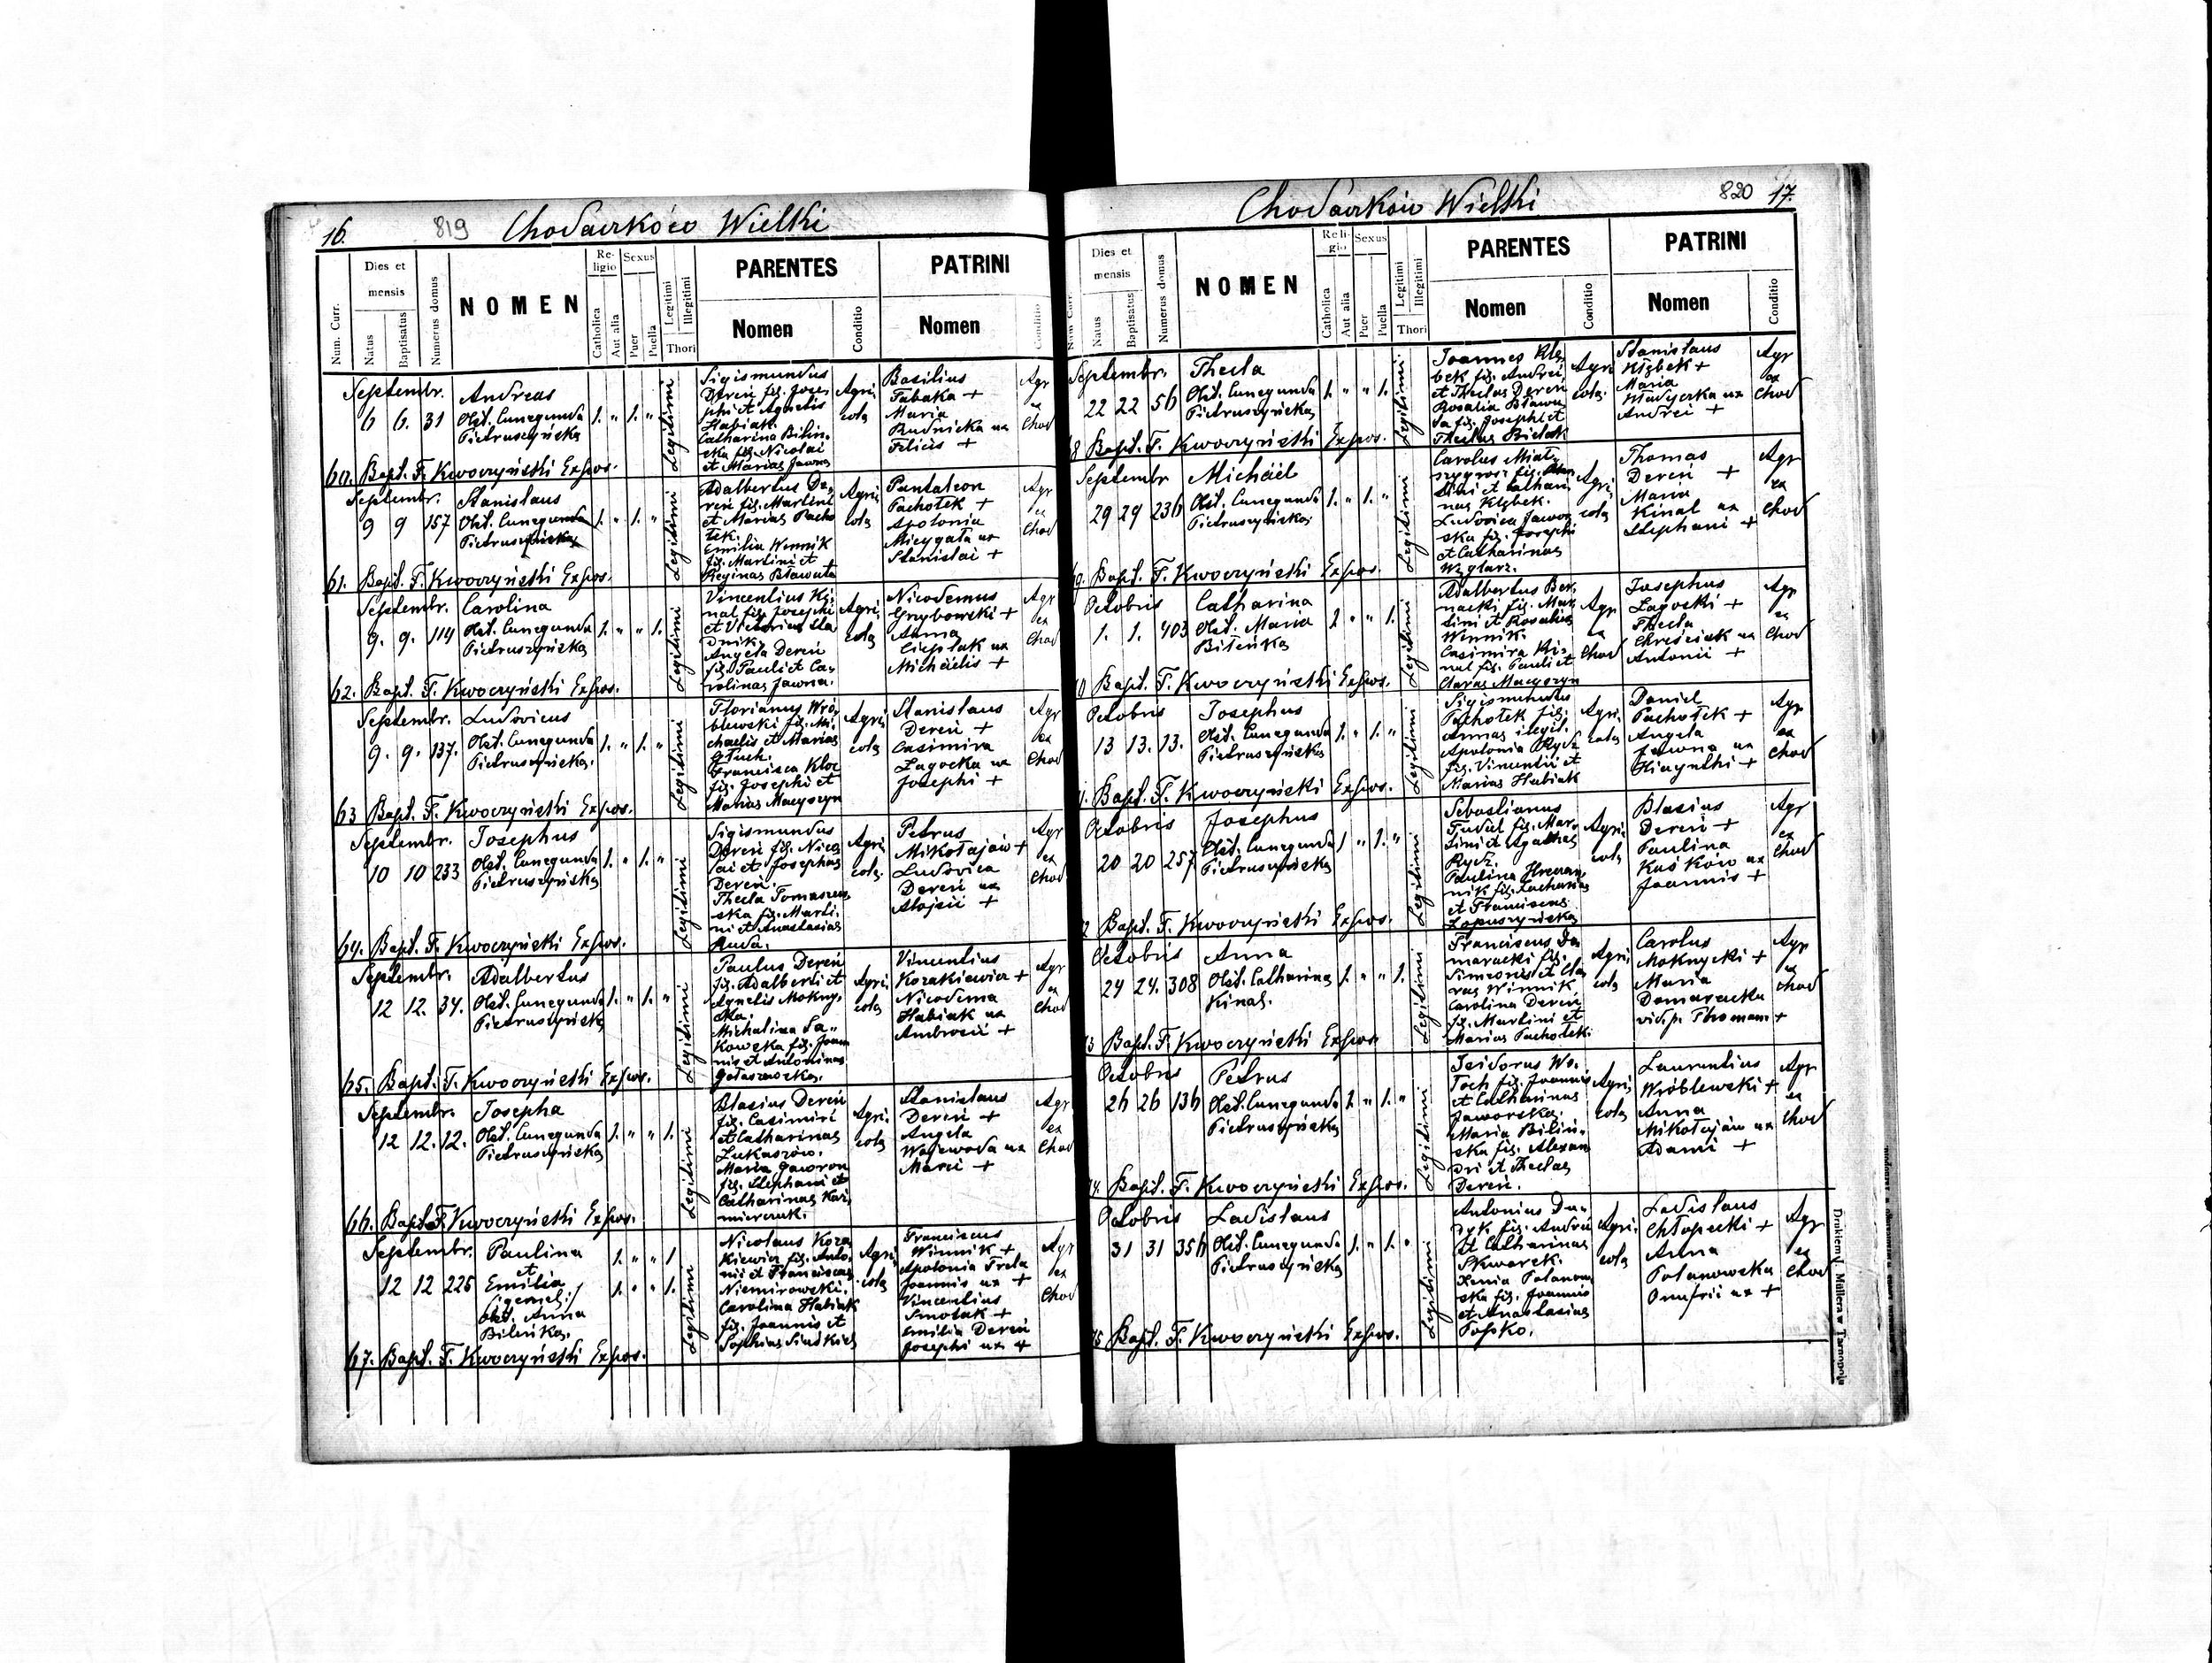 16. 819 Chodaczków Wielki
Num. Curr.
Dies et mensis
Natus
Baptisatus
Numerus domus
NOMEN
Religio
Catholica
Aut alia
Sexus
Puer
Puella
Legitimi
Illegitimi
Thori
PARENTES
Nomen
Conditio
PATRINI
Nomen
Conditio
Septembr. Andreas
6 6. 31 Obst. Cunegunda
Pietruszyńska
1. " 1. "
Legitimi
Sigismundus
Dereń fil. Jose-
phi et Agnetis
Habiak.
Catharina Bilin-
ska fil. Nicolai
et Marias Jawna
Agri
cola
Basilius
Tabaka +
Maria
Rudnicka ux
Felicis +
Agr
ex
Chod
60. Bapt. F. Kwoczyński Expos.
Septembr. Stanislaus
9 9 157 Obst. Cunegunda
Pietruszyńska
1. " 1. "
Legitimi
Adalbertus De-
reń fil. Martini
et Marias Pacho
łek.
Emilia Winnik
fil. Martini et
Reginas Bławuta
Agri
cola
Pantaleon
Pachołek +
Apolonia
Micygała ux
Stanislai +
Agr
ex
Chod
61. Bapt. F. Kwoczyński Expos.
Septembr. Carolina
9. 9. 114 Obst. Cunegunda
Pietruszyńska
1. " " 1.
Legitimi
Vincentius Ki-
nal fil. Josephi
et Victorias Sta
dnik.
Angela Dereń
fil. Pauli et Ca-
rolinas Jawna.
Agri
cola
Nicodemus
Grybowski +
Anna
Cieplak ux
Michaelis +
Agr
ex
Chod
62. Bapt. F. Kwoczyński Expos.
Septembr. Ludovicus
9. 9. 137. Obst. Cunegunda
Pietruszyńska.
1. " 1. "
Legitimi
Florianus Wró-
blewski fil. Mi-
chaelis et Marias
Głuch.
Francisca Kloc
fil. Josephi et
Marias Macyszyn
Agri
cola
Stanislaus
Dereń +
Casimira
Łagocka ux
Josephi +
Agr
ex
Chod
63 Bapt. F. Kwoczyński Expos.
Septembr. Josephus
10 10 233 Obst. Cunegunda
Pietruszyńska
1. " 1. "
Legitimi
Sigismundus
Dereń fil. Nico
lai et Josephas
Dereń.
Thecla Tomaszew
ska fil. Marti-
ni et Anastasias
Ruda.
Agri
cola.
Petrus
Mikołajów +
Ludovica
Dereń ux
Alojsii +
Agr
ex
Chod
64. Bapt. F. Kwoczyński Expos.
Septembr. Adalbertus
12 12. 34. Obst. Cunegunda
Pietruszyńska
1. " 1. "
Legitimi
Paulus Dereń
fil. Adalberti et
Agnetis Mokny-
cka.
Michalina Sa-
kowska fil. Joan
nis et Antoninas
Gołaszewska.
Agri
cola
Vincentius
Kozakiewicz +
Nicodema
Habiak ux
Ambrosii +
Agr
ex
Chod
65. Bapt. F. Kwoczyński Expos.
Septembr. Josepha
12 12. 12. Obst. Cunegunda
Pietruszyńska
1. " " 1.
Legitimi
Blasius Dereń
fil. Casimiri
et Catharinas
Łukaszów.
Maria Gawron
fil. Stephani et
Catharinas Kaź-
mierczuk.
Agri
cola
Stanislaus
Dereń +
Angela
Wojewoda ux
Marci +
Agr
ex
Chod
66. Bapt. F. Kwoczyński Expos.
Septembr. Paulina
et
12 12 226 Emilia
/:gemel:/
Obst. Anna
Bilińska.
1. " " 1
1. " " 1.
Legitimi
Nicolaus Koza
kiewicz fil. Anto-
nii et Franciscas
Niemirowski.
Carolina Habiak
fil. Joannis et
Sophias
Agri
cola
Franciscus
Winnik +
Apolonia Trela
Joannis ux +
Vincentius
Smolak +
Emilia Dereń
Josephi ux +
Agr
ex
Chod
67. Bapt. F. Kwoczyński Expos.
Chodaczków Wielki 820 17.
Num Curr.
Dies et mensis
Natus
Baptisatus
Numerus domus
NOMEN
Religio
Catholica
Aut alia
Sexus
Puer
Puella
Legitimi
Illegitimi
Thori
PARENTES
Nomen
Conditio
PATRINI
Nomen
Conditio
Septembr. Thecla
22 22 56 Obst. Cunegunda
Pietruszyńska
1. " " 1.
Legitimi
Joannes Kłę
bek fil. Andrei
et Theclas Dereń
Rosalia Bławu
ta fil. Josephi et
Theclas Bielak
Agri
cola.
Stanislaus
Kłębek +
Maria
Madyerka ux
Andrei +
Agr
ex
Chod
8 Bapt. F. Kwoczyński Expos.
Septembr Michäel
29 29 236 Obst. Cunegunda
Pietruszyńska
1. " 1. "
Legitimi
Carolus Miat-
et Cathari
nas Kłębek.
Ludovica Jawor
ska fil. Josephi
et Catharinas
Węglarz.
Agri
cola
Thomas
Dereń +
Maria
Kinal ux
Stephani +
Agr
ex
Chod
9. Bapt. F. Kwoczyński Expos.
Octobris Catharina
1. 1. 403 Obst. Maria
Bileńka
1 " " 1.
Legitimi
Adalbertus Ber-
nacki fil. Mar
tini et Rosalias
Winnik.
Casimira Ki-
nal fil. Pauli et
Claras Macyszyn
Agr
ex
Chod
Josephus
Łagocki +
Thecla
Chreściak ux
Antonii +
Agr
ex
Chod
0 Bapt. F. Kwoczyński Expos.
Octobris Josephus
13 13. 13. Obst. Cunegunda
Pietruszyńska
1. " 1. "
Legitimi
Sigismundus
Pachołek fil.
Annas illegit.
Apolonia Rydz
fil. Vincentii et
Marias Habiak
Agri
cola
Daniel
Pachołek +
Angela
Jawna ux
Hiacynthi +
Agr
ex
Chod
1. Bapt. F. Kwoczyński Expos.
Octobris Josephus
20 20 257 Obst. Cunegunda
Pietruszyńska
1 " 1. "
Legitimi
Sebastianus
Fudal fil. Mar-
tini et Agathas
Rydz.
Paulina
nik fil. Zacharias
et Franciscas
Łopuszyńska
Agri
cola
Blasius
Dereń +
Paulina
Kuśków ux
Joannis +
Agr
ex
Chod
2 Bapt. F. Kwoczyński Expos.
Octobris Anna
24 24. 308 Obst. Catharina
Kinal.
1. " " 1.
Legitimi
Franciscus Do
maracki fil.
Simeonis et Cla
ras Winnik
Carolina Dereń
fil. Martini et
Marias Pachołek.
Agri
cola
Carolus
Moknycki +
Maria
Domaracka
vid. p. Thomam +
Agr
ex
Chod
3 Bapt. F. Kwoczyński Expos.
Octobris Petrus
26 26 136 Obst. Cunegunda
Pietruszyńska
1 " 1. "
Legitimi
Isidorus Wo-
łoch fil. Joannis
et Catharinas
Jaworska.
Maria Biliń-
ska fil. Alexan
dri et Theclas
Dereń.
Agri
cola
Laurentius
Wróblewski +
Anna
Mikołajów ux
Adami +
Agr
ex
Chod
4. Bapt. F. Kwoczyński Expos.
Octobris Ladislaus
31 31 356 Obst. Cunegunda
Pietruszyńska
1. " 1. "
Legitimi
Antonius Du-
dyk fil. Andrei
et Catharinas
Skworek.
Xenia Polanow
ska fil. Joannis
et Anastasias
Popko.
Agri
cola
Ladislaus
Chłopecki +
Anna
Polanowska
Onufrii ux +
Agr
ex
Chod
5 Bapt. F. Kwoczyński Expos.
Drukiem J. Müllera w Tarnopolu